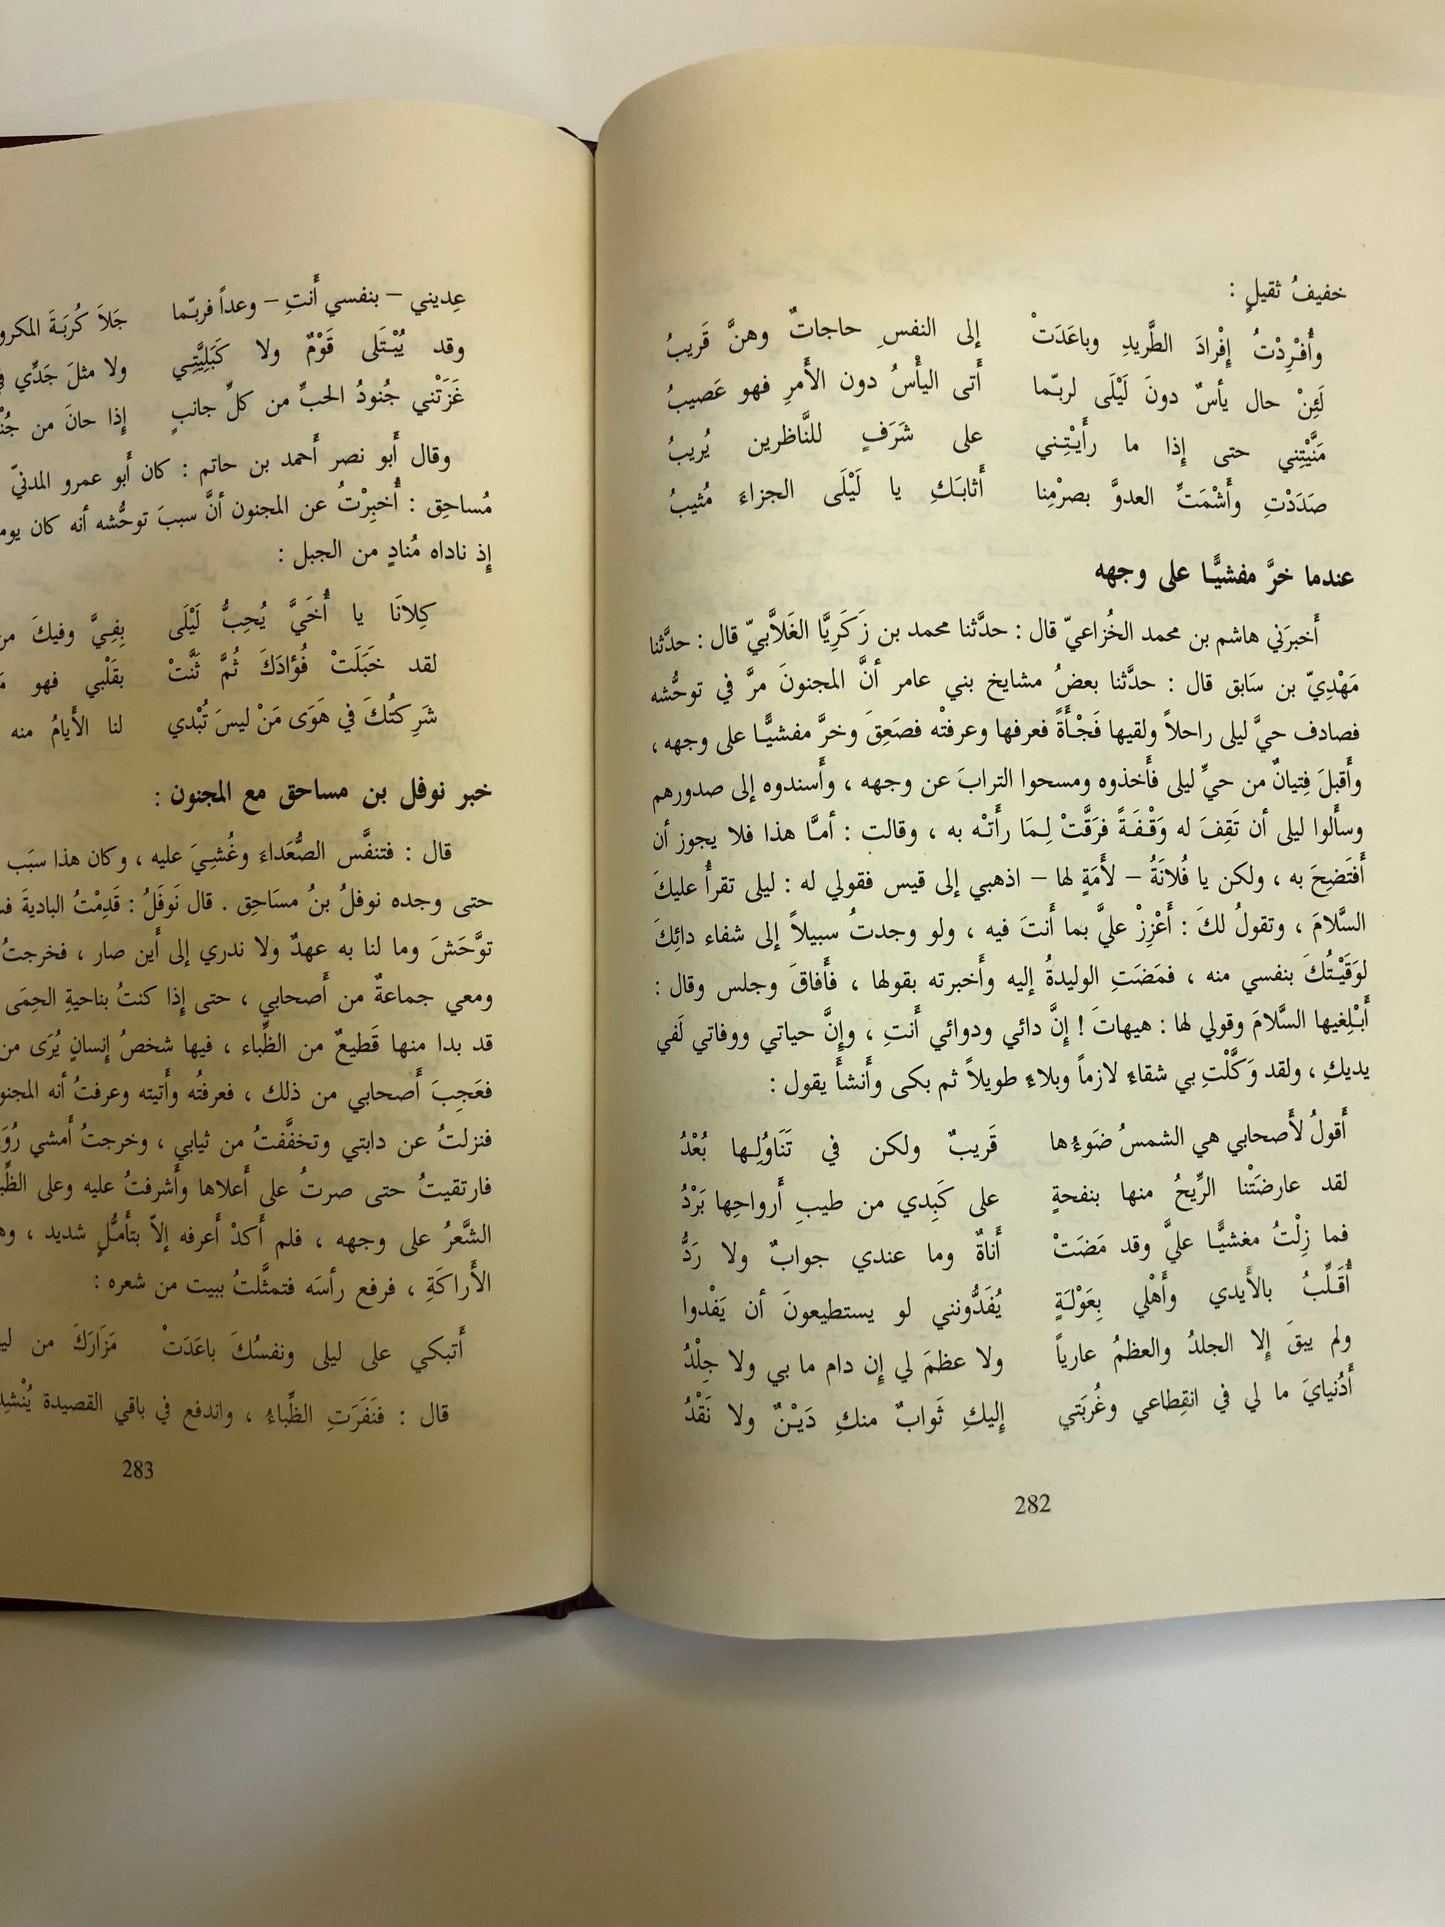 خفيفُ ثقيلٍ :
وأُفْرِدْتُ إِفْرادَ الطَّريدِ وباعَدَتْ إلى النفسِ حاجاتٌ وهنَّ قَريبُ
لَئِنْ حال يأسٌ دونَ لَيْلَى لربّما أَتى اليأْسُ دون الأَمرِ فهو عَصيبُ
مَنَّيْتِني حتى إِذا ما رأَيْتِني على شَرَفٍ للنَّاظرين يُريبُ
صَدَدْتِ وأَشْمَتِّ العدوَّ بصرْمِنا أَثابَكِ يا لَيْلَى الجزاءَ مُثيبُ
عندما خرَّ مغشيًّا على وجهه
أَخبرَني هاشم بن محمد الخُزاعيّ قال : حدَّثنا محمد بن زَكَرِيَّا الغَلاَّبيّ قال : حدَّثنا
مَهْدِيّ بن سَابق قال : حدَّثنا بعضُ مشايخ بني عامر أنَّ المجنونَ مرَّ في توحُّشه
فصادف حيَّ ليلى راحلاً ولقيها فَجْأَةً فعرفها وعرفتْه فصَعِقَ وخرَّ مغشيًّا على وجهه ،
وأَقبلَ فِتيانٌ من حيِّ ليلى فأَخذوه ومسحوا الترابَ عن وجهه ، وأَسندوه إلى صدورهم
وسأَلوا ليلى أن تَقِفَ له وَقْفَةً فرَقَّتْ لِمَا رأَتْه به ، وقالت : أمَّا هذا فلا يجوز أن
أَفتَضِحَ به ، ولكن يا فُلانَةُ – لأَمَةٍ لها – اذهبي إلى قيس فقولي له : ليلى تقرأُ عليكَ
السَّلامَ ، وتقولُ لكَ : أَعْزِزْ عليَّ بما أَنتَ فيه ، ولو وجدتُ سبيلاً إلى شفاء دائِكَ
لوَقَيْتُكَ بنفسي منه ، فمَضَتِ الوليدةُ إليه وأَخبرته بقولها ، فأَفاقَ وجلس وقال :
أَبْلِغيها السَّلامَ وقولي لها : هيهاتَ ! إنَّ دائي ودوائي أَنتِ ، وإنَّ حياتي ووفاتي لَفي
يديكِ ، ولقد وَكَّلْتِ بي شقاءً لازماً وبلاءً طويلاً ثم بكى وأَنشأَ يقول :
أَقولُ لأَصحابي هي الشمسُ ضَوءُها قَريبٌ ولكن في تَنَاوُلِها بُعْدُ
لقد عارضَتْنا الرِّيحُ منها بنفحةٍ على كَبِدي من طيبِ أَرواحِها بَرْدُ
فما زِلْتُ مغشيًّا عليَّ وقد مَضَتْ أَناةٌ وما عندي جوابٌ ولا رَدُّ
أُقَلَّبُ بالأَيدي وأَهْلي بِعَوْلَةٍ يُفَدُّونني لو يستطيعونَ أن يَفْدوا
ولم يبقَ إلا الجلدُ والعظمُ عارياً ولا عظمَ لي إن دام ما بي ولا جِلْدُ
أَدُنيايَ ما لي في انقِطاعي وغُربَتي إليكِ ثَوابٌ منكِ دَيْنٌ ولا نَقْدُ
282
عِديني – بنفسي أَنتِ – وعداً فربّما جَلاَ كُربَةَ
وقد يُبْتَلَى قَوْمٌ ولا كَبَلِيَّتِي ولا مثلَ جَدِّي
غَزَتْني جُنودُ الحبِّ من كلِّ جانبٍ إِذا حانَ من
وقال أَبو نصر أَحمد بن حاتم : كان أَبو عمرو المدنيّ
مُساحِق : أُخبِرْتُ عن المجنون أنَّ سببَ توحُّشه أنه كان
إِذ ناداه مُنادٍ من الجبل :
كِلانَا يا أُخَيَّ يُحِبُّ لَيْلَى بِفِيَّ وفيكَ
لقد خَبَلَتْ فُؤادَكَ ثُمَّ ثَنَّتْ بقَلْبي فهو
شَرِكتُكَ في هَوَى مَنْ ليسَ تُبْدي لنا الأَيامُ منه
خبر نوفل بن مساحق مع المجنون :
قال : فتنفَّس الصُّعَداءَ وغُشِيَ عليه ، وكان هذا سبَب
حتى وجده نوفلُ بنُ مسَاحِق . قال نَوفَلُ : قَدِمْتُ الباديةَ
توَّحَشَ وما لنا به عهدٌ ولا ندري إلى أَين صار ، فخرجتُ
ومعي جماعةٌ من أَصحابي ، حتى إِذا كنتُ بناحيةِ الحِمَى
قد بدا منها قَطيعٌ من الظِّباء ، فيها شخصُ إِنسانٍ يُرَى من
فعَجِبَ أَصحابي من ذلك ، فعرفتُه وأَتيته وعرفتُ أنه
فنزلتُ عن دابتي وتخفَّفتُ من ثيابي ، وخرجتُ أَمشي
فارتقيتُ حتى صرتُ على أَعلاها وأَشرفتُ عليه وعلى
الشَّعرُ على وجهه ، فلم أَكدْ أَعرفه إلاّ بتأَمُّلٍ شديد ،
الأَراكَةِ ، فرفع رأسَه فتمثَّلتُ ببيت من شعره :
أَتبكي على ليلى ونفسُكَ باعَدَتْ مَزَارَكَ من
قال : فنَفَرَتِ الظِّباءُ ، واندفع في باقي القصيدة
283